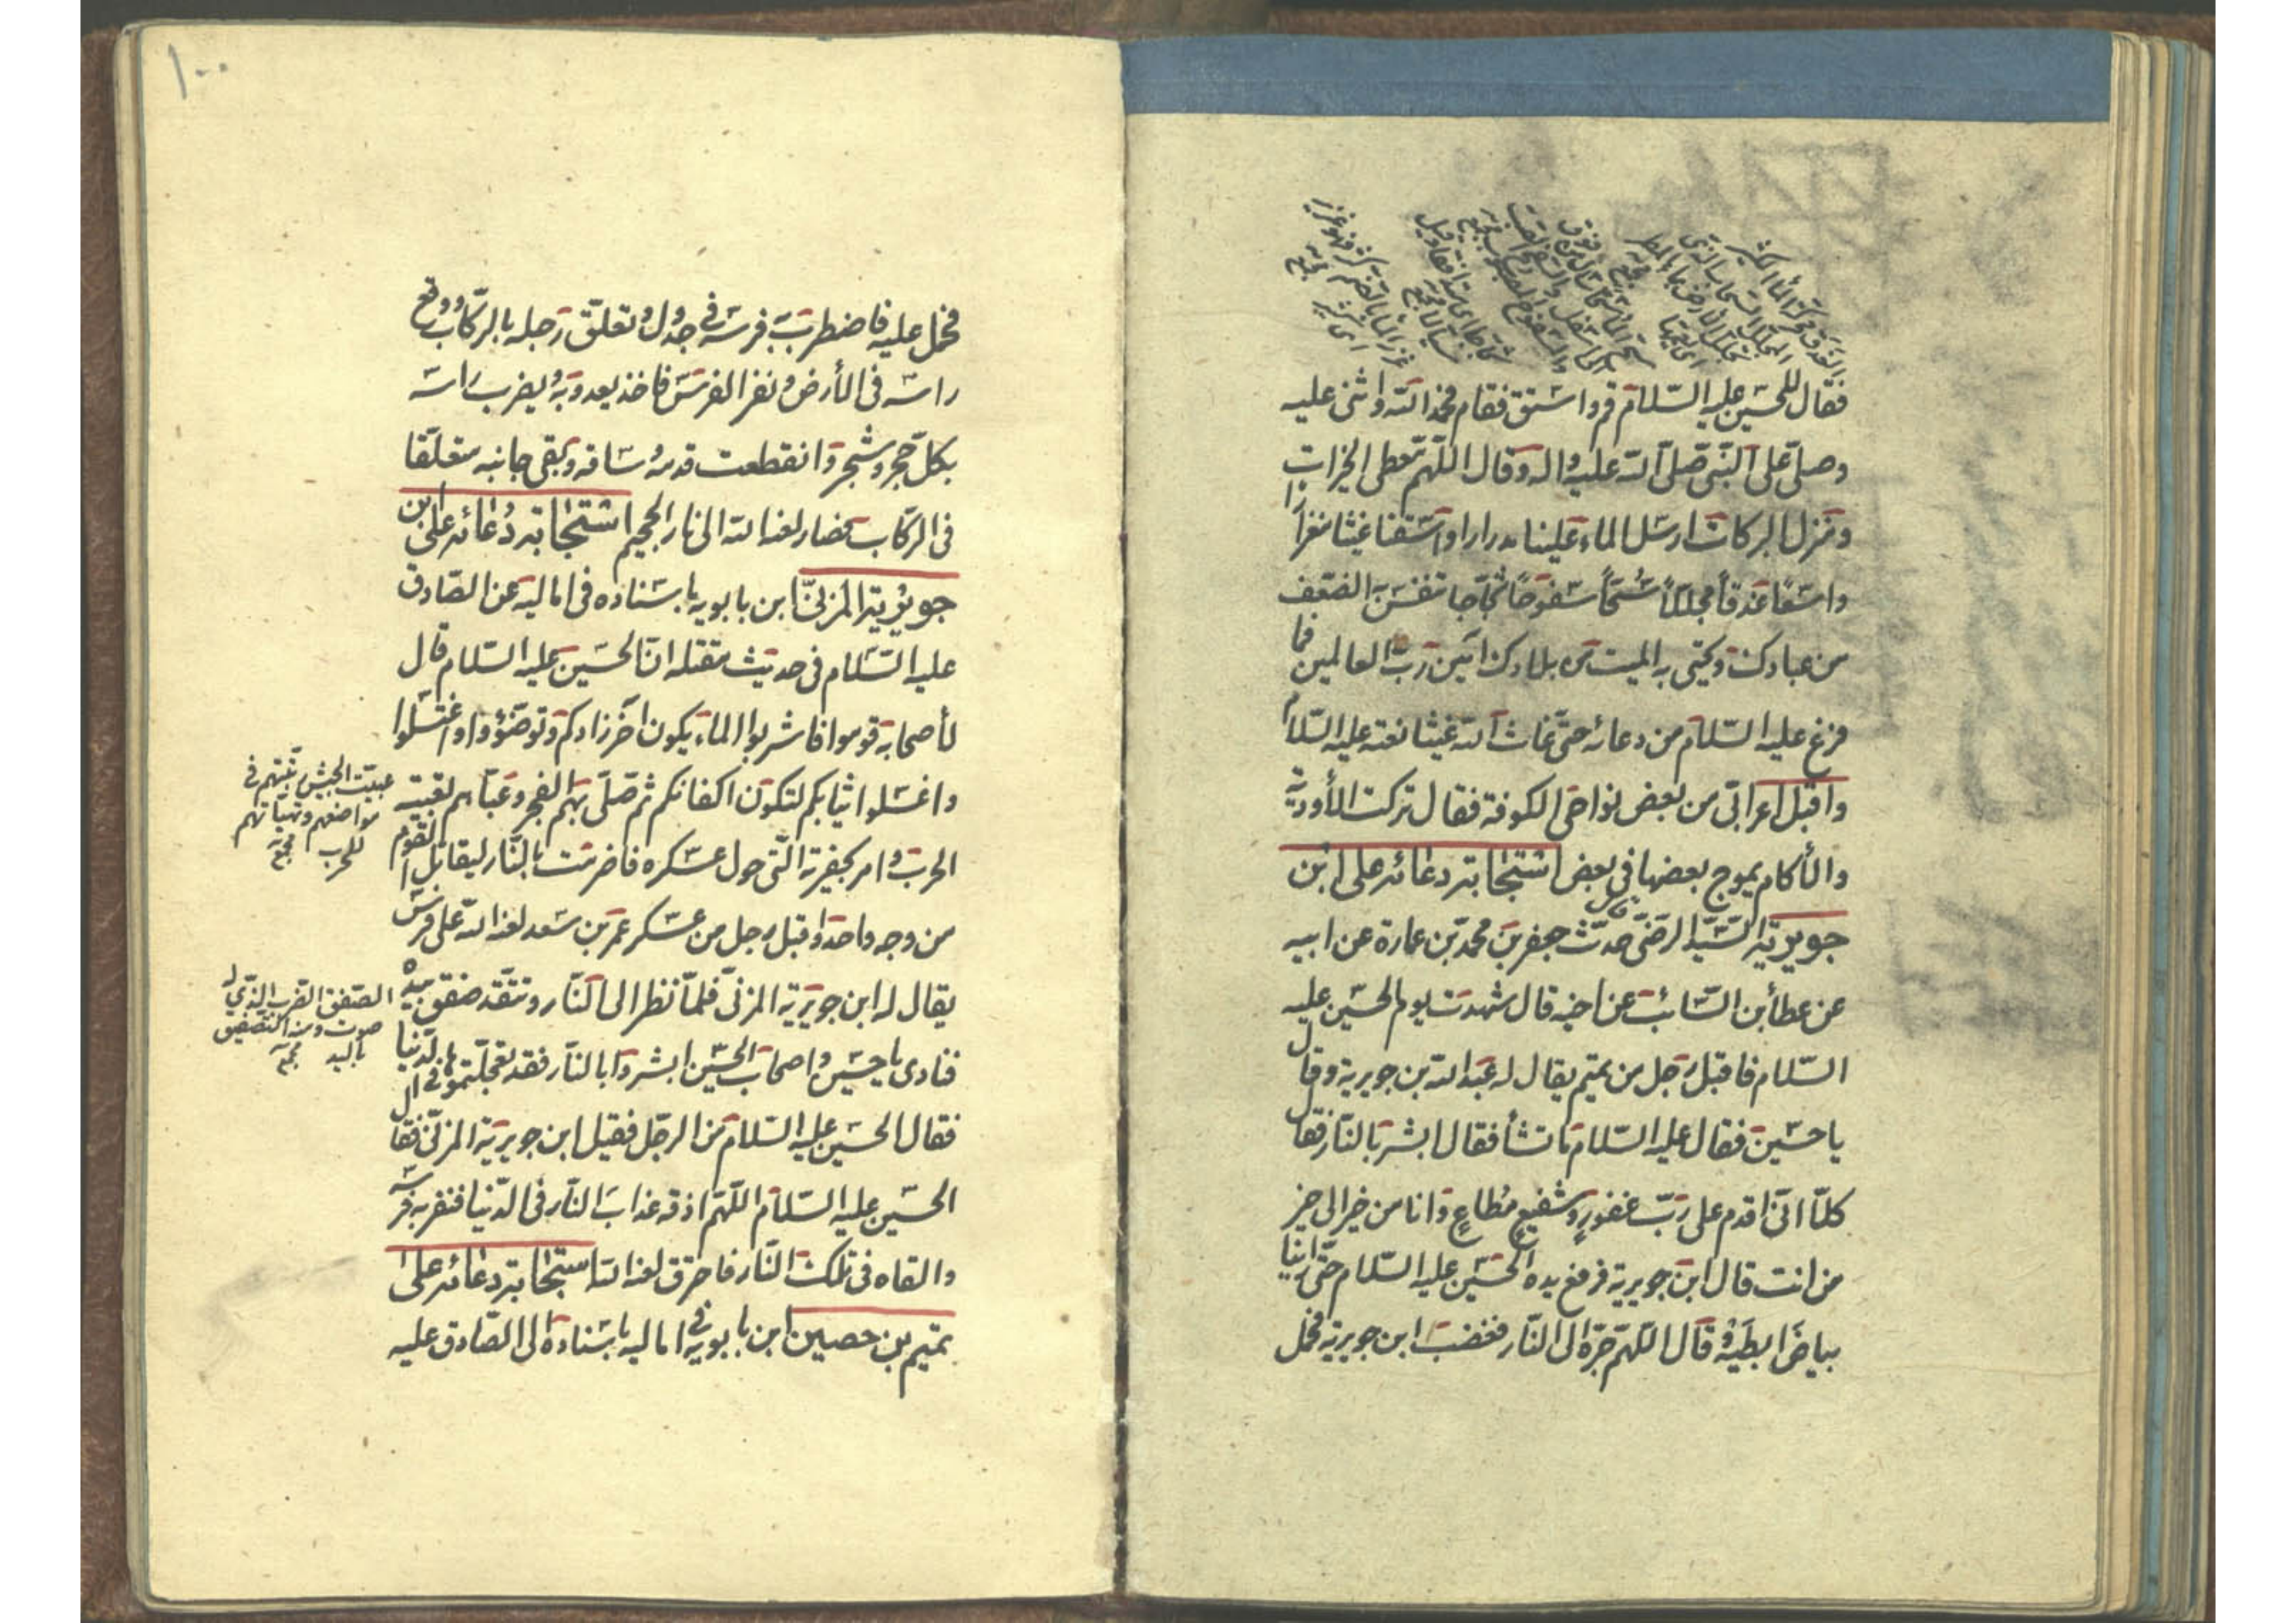 فقال للحسين عليه السّلام قم واستسق فقام فحمد الله واثنى عليه
وصلّى على النّبىّ صلّى الله عليه واله وقال اللّهمّ معطى الخيرات
ومنزل البركات ارسل الماء علينا مدرارا واسقنا غيثا مغزارا
واسعًا غدقاً مجللّاً سُحّاً سفوحًا ثجّاجا تنفس به الضعف
من عبادك وتحيى به الميت من بلادك امين ربّ العالمين فما
فرغ عليه السّلام من دعائه حتّى غاث الله غيثا نعته عليه السّلام
واقبل اعرابى من بعض نواحى الكوفة فقال تركت الأودية
والأكام يموج بعضها فى بعض استجابة دعائه على ابن
جويريّة السّيّد الرّضىّ حدّث جعفر بن محمّد بن عمارة عن ابيه
عن عطأ بن السّائب عن اخيه قال شهدت يوم الحسين عليه
السّلام فاقبل رجل من تميم يقال له عبد الله بن جويرية وقال
يا حسين فقال عليه السّلام ما تشأ فقال ابشر بالنّار فقال
كلّا انّى اقدم على ربّ غفورٍ وشفيعٍ مُطاعٍ وانا من خير الى خير
من انت قال ابن جويرية فرفع يده الحسين عليه السّلام حتّى راينا
بياض ابطيه وقال اللّهمّ جرّه الى النّار فغضب ابن جويرية فحمل
١٠٠
فحمل عليه فاضطرب به فرسه فى جدول وتعلّق رجله بالرّكاب ووقع
راسه فى الأرض ونفر الفرس فاخذ يعدو به ويضرب راسه
بكلّ حجر وشجر وانقطعت قدمه وساقه وبقى جانبه متعلّقا
فى الرّكاب فصار لعنه الله الى نار الجحيم استجابة دُعائه على ابن
جويريّة المزنىّ ابن بابويه باسناده فى اماليه عن الصّادق
عليه السّلام فى حديث مقتله انّ الحسين عليه السّلام قال
لأصحابه قوموا فاشربوا الماء يكون اخر زادكم وتوضّؤوا واغتسلوا
واغسلوا ثيابكم لتكون اكفانكم ثمّ صلّى بهم الفجر وعبّاهم تعبية
الحرب وامر بحفيرته الّتى حول عسكره فاضرمت بالنّار ليقاتل القوم
من وجه واحد واقبل رجل من عسكر عمر بن سعد لعنه الله على فرس
يقال له ابن جويرية المزنىّ فلمّا نظر الى النّار وتتقّد صفق بيده
فنادى يا حسين واصحاب الحسين ابشروا بالنّار فقد تعجّلتموها فى الدّنيا
فقال الحسين عليه السّلام من الرّجل فقيل ابن جويرية المزنىّ فقال
الحسين عليه السّلام اللّهمّ اذقه عذاب النّار فى الدّنيا فنفر به فرسه
والقاه فى تلك النّار فاحترق لعنه الله استجابة دعائه على
تميم بن حصين ابن بابويه فى اماليه باسناده الى الصّادق عليه
عبيت الجيش رتبتهم فى
مواضعهم وهيأتهم
للحرب مجمع
الصّفق الضرب الّذى له
صوت ومنه التصفيق
باليد مجمع